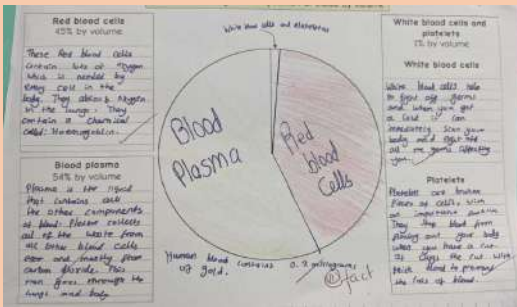 Red blood cells
45% by volume
These Red blood cells
contain lots of oxygen
which is needed by
every cell in the
body. They absorb oxygen
in the lungs. They
contain a chemical
called: Haemoglobin.
Blood plasma
54% by volume
Plasma is the liquid
that contains all
the other components
of blood. Plasma collects
all of the waste from
all other blood cells
even and mostly from
carbon dioxide. This
then goes through the
lungs and body
White blood cells and Platelets
Blood
Plasma
Red
blood
Cells
Human blood contains 0.2 milligrams
of gold.
fact
White blood cells and
platelets
1% by volume
White blood cells
White blood cells help
to fight off germs
and when you get
a cold it can
immediately scan your
body and fight off
all the germs affecting
you.
Platelets
Platelets are broken
pieces of cells, with
an important function
They stop blood from
flowing out your body
when you have a cut
as clogs the cut with
thick blood to prevent
the loss of blood.